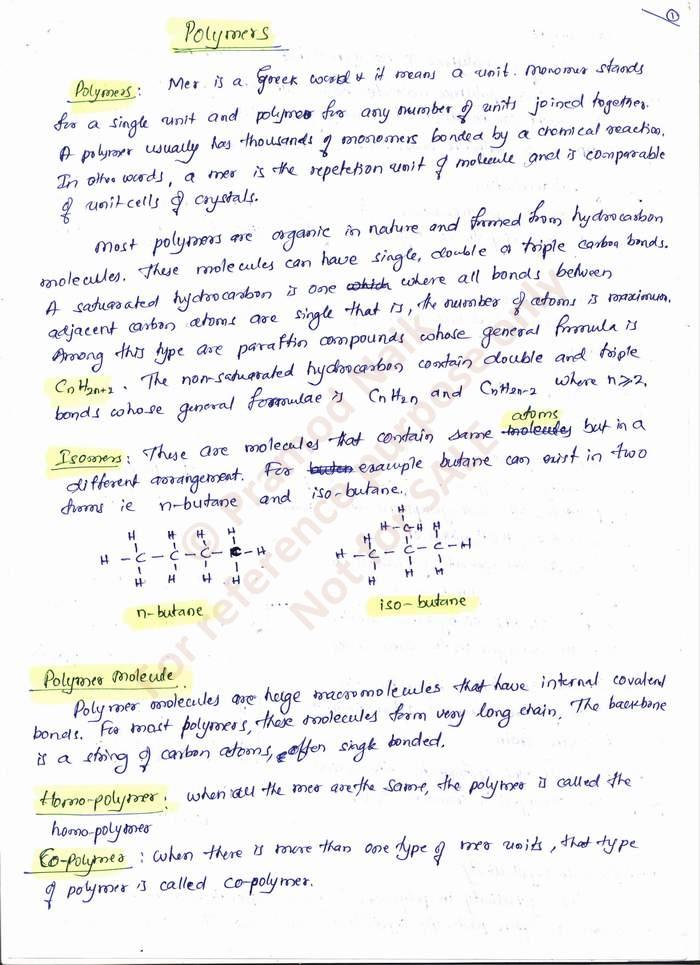 1
Polymers
Polymers: Mer is a Greek word & it means a unit. monomer stands
for a single unit and polymer for any number of units joined together.
A polymer usually has thousands of monomers bonded by a chemical reaction.
In other words, a mer is the repetetion unit of molecule and is comparable
of unit cells of crystals.
Most polymers are organic in nature and formed from hydrocarbon
molecules. These molecules can have single, double or triple carbon bonds.
A saturated hydrocarbon is one which where all bonds between
adjacent carbon atoms are single that is, the number of atoms is maximum.
Among this type are paraffin compounds whose general formula is
CnH2n+2. The non-saturated hydrocarbon contain double and triple
bonds whose general formulae is CnH2n and CnH2n-2 where n≥2.
atoms
Isomers: These are molecules that contain same molecules but in a
different arrangement. For buten example butane can exist in two
forms ie n-butane and iso-butane.
H H H H
H - C - C - C - C - H
H H H H
n-butane
H
H - C H H
H - C - C - C - H
H H H
iso-butane
Polymer molecule
Polymer molecules are huge macromolecules that have internal covalent
bonds. For most polymers, these molecules form very long chain. The backbone
is a string of carbon atoms, often single bonded.
Homo-polymer: when all the mer are the same, the polymer is called the
homo-polymer
Co-polymer: when there is more than one type of mer units, that type
of polymer is called co-polymer.
© Pramod Naik
For reference purpose only
Not for SALE